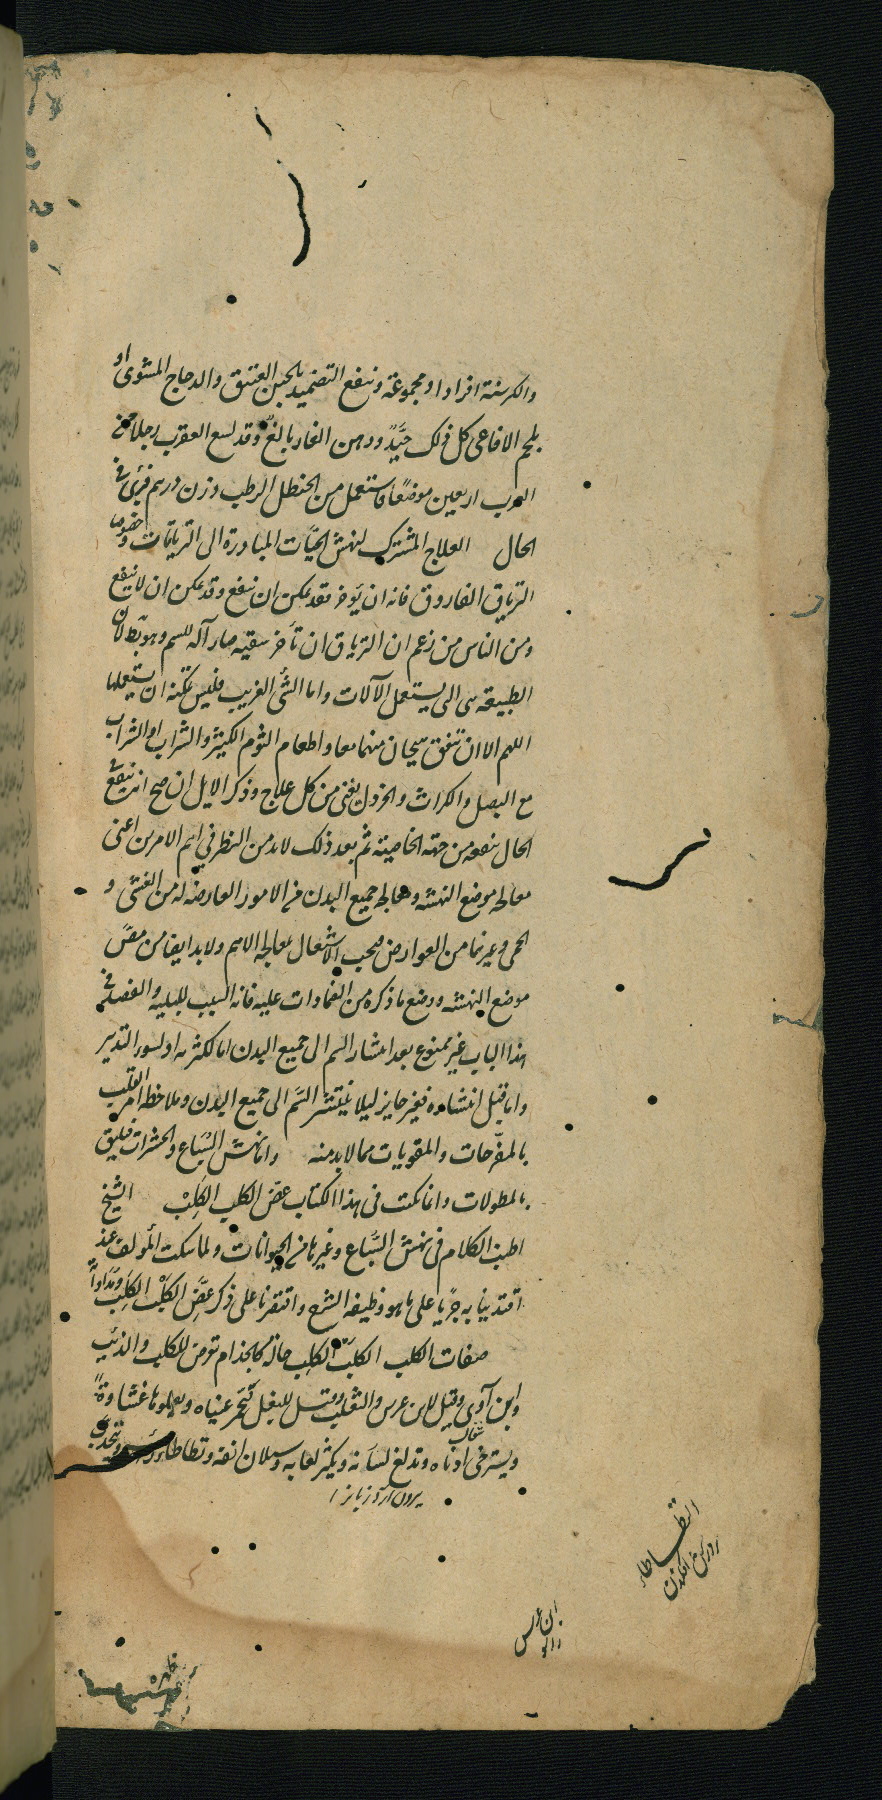 والكرسنة افرادا ومجموعة وينفع التضميد بالجبن العتيق والدجاج المشوى او
بلحم الافاعى كل ذلك جيّد ودهن الغار بالغ وقد لسع العقرب رجلا من
العرب اربعين موضعا فاستعمل من الحنطل الرطب وزن درهم فبرئ فى
الحال العلاج المشترك لنهش الحيّات المبادرة الى الترياقات وخصوصا
الترياق الفاروق فانه ان يؤخر فقد يمكن ان ينفع وقد يمكن ان لا ينفع
ومن الناس من زعم ان الترياق ان تأخر سقيه صار آلة للسم وهو بط لان
الطبيعة هى التى يستعمل الآلات واما الشئ الغريب فليس يمكنه ان يستعملها
اللهم الا ان تتفق هيجان منهما معا واطعام الثوم الكثير والشراب او الشراب
مع البصل والكراث والخردل يغنى من كل علاج وذكر الايل ان صح انه ينفع
الحال ينفعه من جهة الخاصية ثم بعد ذلك لابد من النظر فى اهم الامرين اعنى
معالجة موضع النهشة ومعالجة جميع البدن فى الامور العارضة له من الغشى و
الحمى وغيرهما من العوارض فيجب الاشتغال بمعالجة الاهم ولابد ايضا من مصّ
موضع النهشة ووضع ما ذكره من الضمادات عليه فانه السبب للبلية والفصد فى
هذا الباب غير ممنوع بعد انتشار السم الى جميع البدن اما لكثرته او لسوء التدبير
واما قبل انتشاره فغير جايز ليلا ينتشر السّم الى جميع البدن وملاحظة امر القلب
بالمفرّحات والمقويات مما لابد منه واما نهش السّباع والحشرات فيليق
بالمطولات وانما نكتب فى هذا الكتاب عضّ الكلب الكَلِبْ الشيخ
اطنب الكلام فى نهش السّباع وغيرها من الحيوانات ولما سكت المؤلف عنه
اقتدينا به جريا على ما هو وظيفة الشرح واقتصرنا على ذكر عضّ الكلب الكَلِب ومداواته
صفات الكلب الكلب الكلب حالة كالجذام تعرض للكلب والذئب
وابن آوى وقيل لابن عرس والثعلب وقيل للبغل تحمر عيناه ويعلوها غشاوة
شغال
ويسترخى اذناه وتدلع لسانه ويكثر لعابه وسيلان انفه وتطاطا رأسه ويتحدب
بيرون آرد زبانرا
التطاطاء
ابن عرس
راسو
ظهره